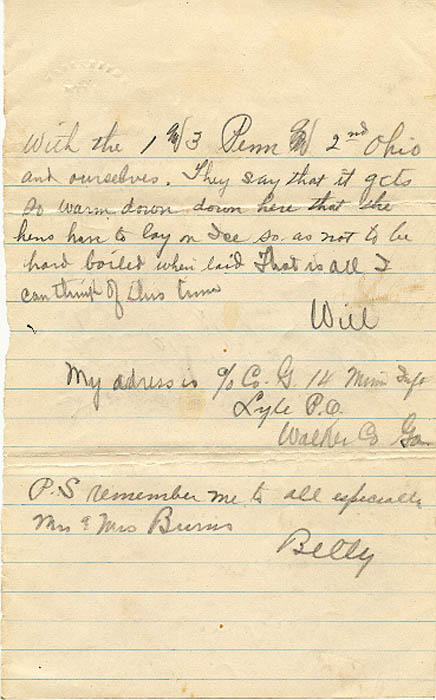 With the 1 & 3 Penn & 2nd Ohio
and ourselves. They say that it gets
so warm down down here that the
hens have to lay on Ice so as not to be
hard boiled when laid That is all I
can think of this time
Will
My adress is c/o Co. G. 14 Minn Inft
Lytle P.O.
Walker Co Ga
P.S remember me to all especially
Mr & Mrs Burns
Billy